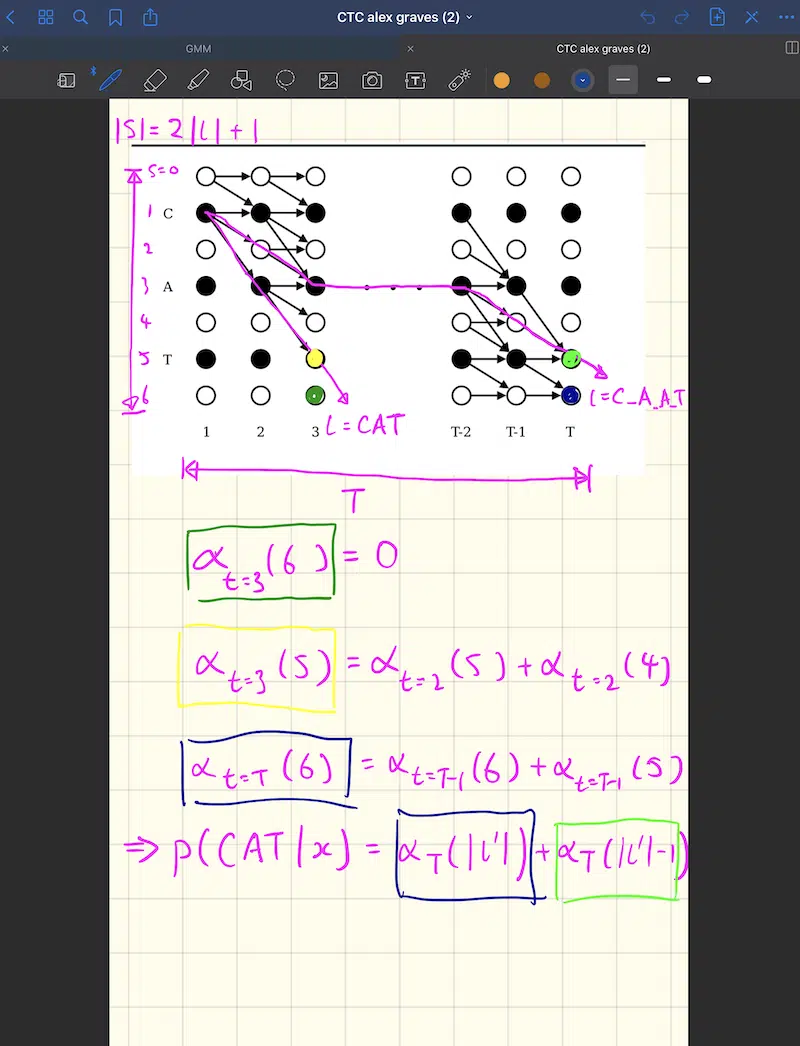 CTC alex graves (2)
GMM
CTC alex graves (2)
|S| = 2|L| + 1
S=0
1 C
2
3 A
4
5 T
6
l=C_A_A_T
1 2 3 T-2 T-1 T
L=CAT
T
α_{t=3}(6) = 0
α_{t=3}(5) = α_{t=2}(5) + α_{t=2}(4)
α_{t=T}(6) = α_{t=T-1}(6) + α_{t=T-1}(5)
⇒ p(CAT|x) = α_T(|l'|) + α_T(|l'|-1)